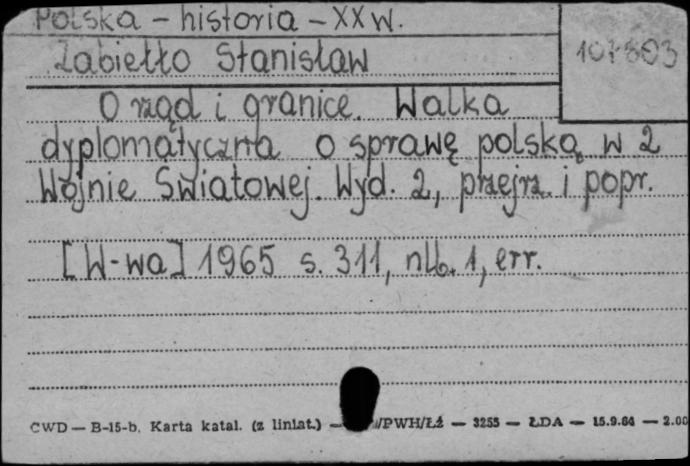 Polska - historia - XX w.
107803
Zabiełło Stanisław
O rząd i granice. Walka
dyplomatyczna o sprawę polską w 2
Wojnie Światowej. Wyd. 2, przejrz. i popr.
[W-wa] 1965 s. 311, nlb. 1, err.
CWD — B-15-b. Karta katal. (z liniat.) — /PWH/Łź — 3255 — ŁDA — 15.9.64 — 2.00